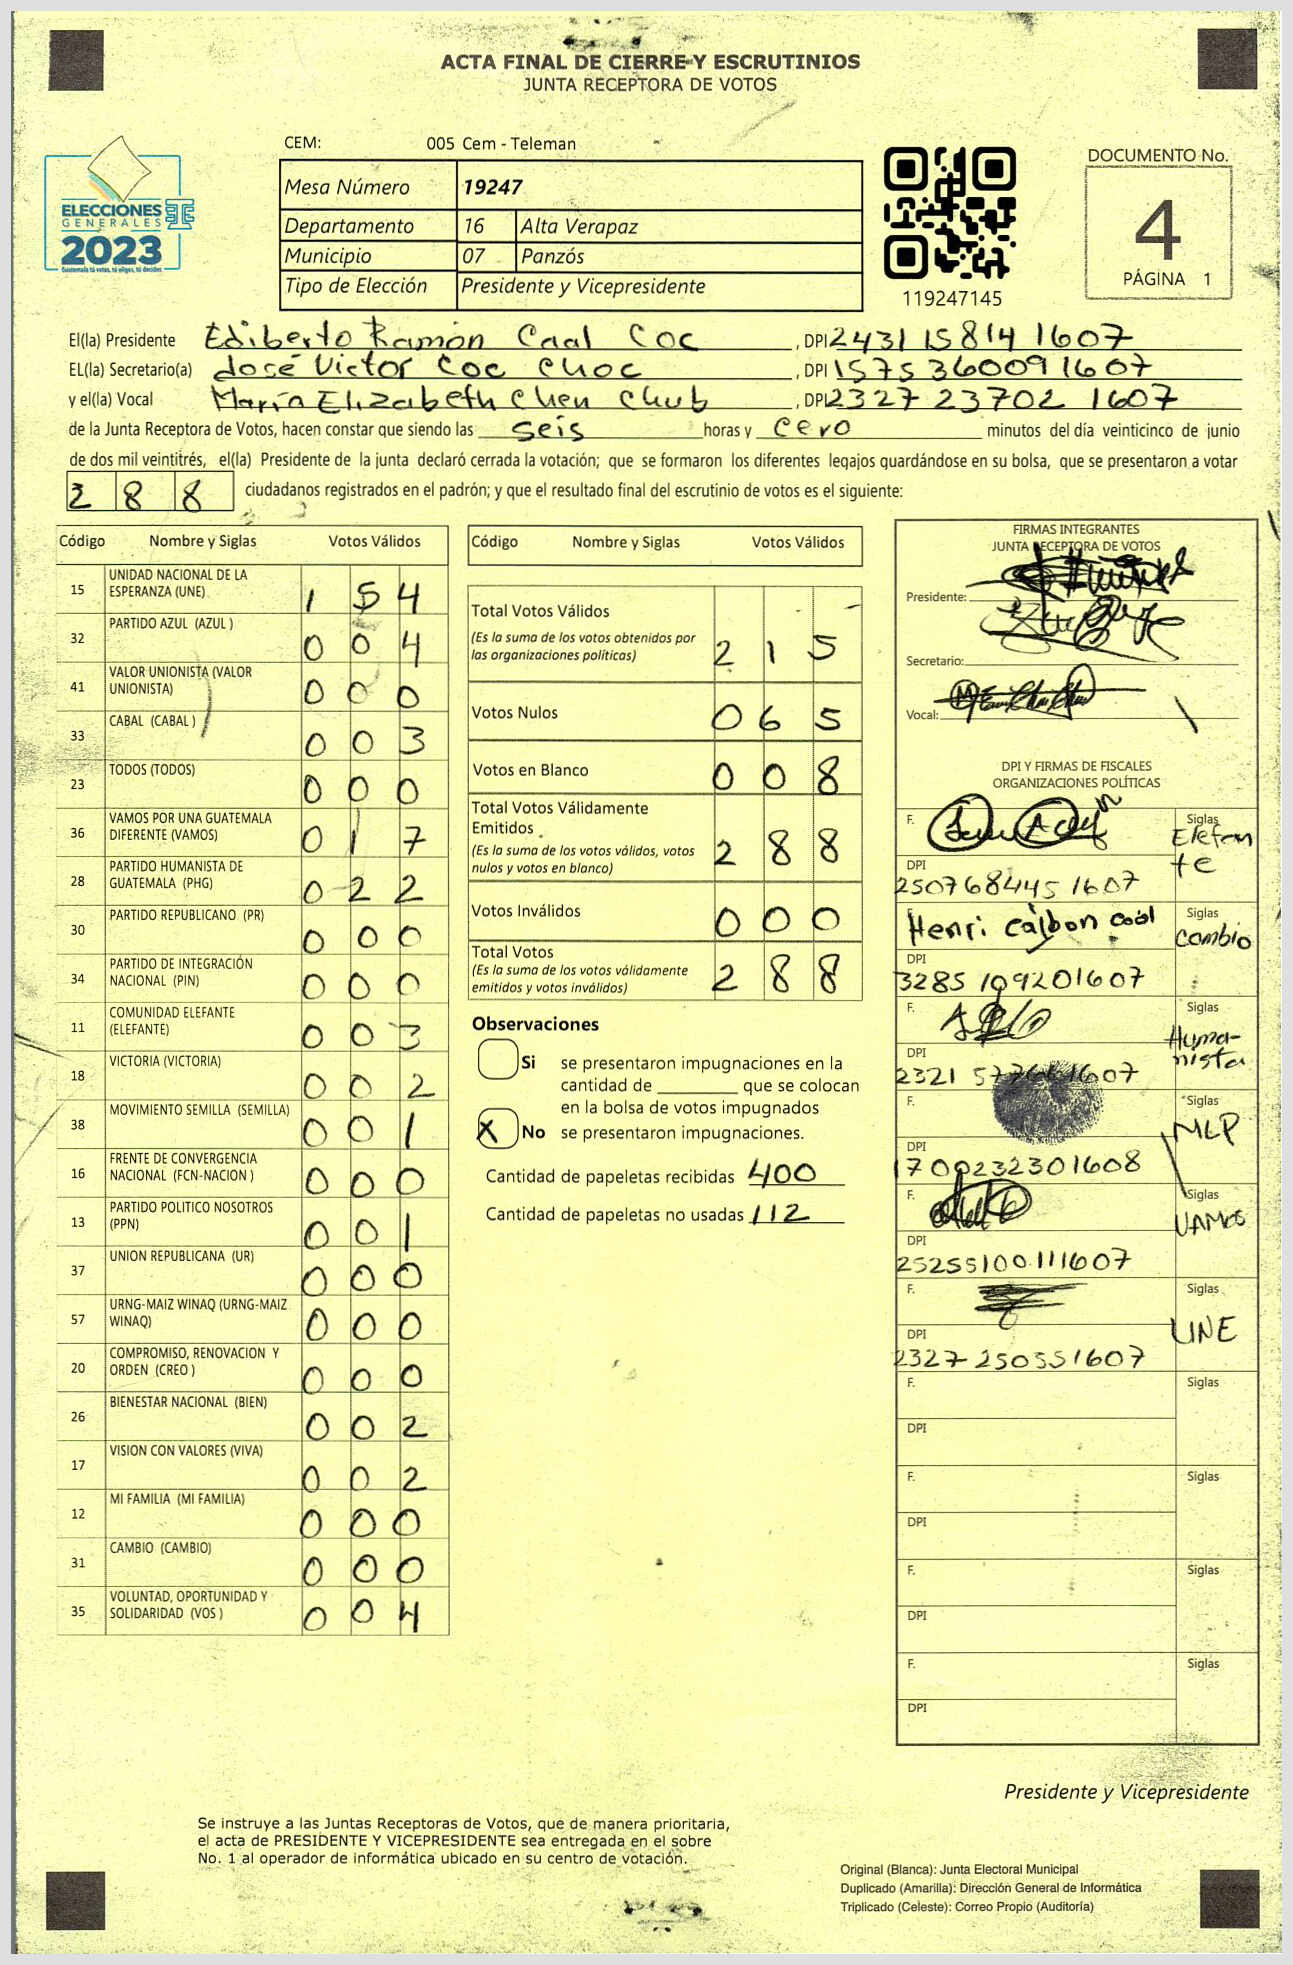 ACTA FINAL DE CIERRE Y ESCRUTINIOS
JUNTA RECEPTORA DE VOTOS
ELECCIONES
GENERALES
2023
Guatemala tú votas, tú eliges, tú decides
CEM: 005 Cem - Teleman
Mesa Número 19247
Departamento 16 Alta Verapaz
Municipio 07 Panzós
Tipo de Elección Presidente y Vicepresidente
119247145
DOCUMENTO No.
4
PÁGINA 1
El(la) Presidente Ediberto Ramón Caal Coc, DPI 2431 15814 1607
EL(la) Secretario(a) José Victor Coc Choc, DPI 1575 36009 1607
y el(la) Vocal María Elizabeth Chen Chub, DPI 2327 23702 1607
de la Junta Receptora de Votos, hacen constar que siendo las seis horas y cero minutos del día veinticinco de junio
de dos mil veintitrés, el(la) Presidente de la junta declaró cerrada la votación; que se formaron los diferentes legajos guardándose en su bolsa, que se presentaron a votar
288 ciudadanos registrados en el padrón; y que el resultado final del escrutinio de votos es el siguiente:
Código Nombre y Siglas Votos Válidos
15 UNIDAD NACIONAL DE LA ESPERANZA (UNE) 1 5 4
32 PARTIDO AZUL (AZUL ) 0 0 4
41 VALOR UNIONISTA (VALOR UNIONISTA) 0 0 0
33 CABAL (CABAL ) 0 0 3
23 TODOS (TODOS) 0 0 0
36 VAMOS POR UNA GUATEMALA DIFERENTE (VAMOS) 0 1 7
28 PARTIDO HUMANISTA DE GUATEMALA (PHG) 0 2 2
30 PARTIDO REPUBLICANO (PR) 0 0 0
34 PARTIDO DE INTEGRACIÓN NACIONAL (PIN) 0 0 0
11 COMUNIDAD ELEFANTE (ELEFANTE) 0 0 3
18 VICTORIA (VICTORIA) 0 0 2
38 MOVIMIENTO SEMILLA (SEMILLA) 0 0 1
16 FRENTE DE CONVERGENCIA NACIONAL (FCN-NACION ) 0 0 0
13 PARTIDO POLITICO NOSOTROS (PPN) 0 0 1
37 UNION REPUBLICANA (UR) 0 0 0
57 URNG-MAIZ WINAQ (URNG-MAIZ WINAQ) 0 0 0
20 COMPROMISO, RENOVACION Y ORDEN (CREO ) 0 0 0
26 BIENESTAR NACIONAL (BIEN) 0 0 2
17 VISION CON VALORES (VIVA) 0 0 2
12 MI FAMILIA (MI FAMILIA) 0 0 0
31 CAMBIO (CAMBIO) 0 0 0
35 VOLUNTAD, OPORTUNIDAD Y SOLIDARIDAD (VOS ) 0 0 4
Código Nombre y Siglas Votos Válidos
Total Votos Válidos 2 1 5
(Es la suma de los votos obtenidos por
las organizaciones políticas)
Votos Nulos 0 6 5
Votos en Blanco 0 0 8
Total Votos Válidamente
Emitidos 2 8 8
(Es la suma de los votos válidos, votos
nulos y votos en blanco)
Votos Inválidos 0 0 0
Total Votos 2 8 8
(Es la suma de los votos válidamente
emitidos y votos inválidos)
Observaciones
Si se presentaron impugnaciones en la
cantidad de ________ que se colocan
en la bolsa de votos impugnados
X No se presentaron impugnaciones.
Cantidad de papeletas recibidas 400
Cantidad de papeletas no usadas 112
FIRMAS INTEGRANTES
JUNTA RECEPTORA DE VOTOS
Presidente:
Secretario:
Vocal:
DPI Y FIRMAS DE FISCALES
ORGANIZACIONES POLÍTICAS
F. Siglas Elefante
DPI 250768445 1607
F. Henri Siglas Cambio
DPI 3285 109201607
F. Siglas Humanista
DPI 2321 1607
F. Siglas MLP
DPI 1700232301608
F. Siglas VAMOS
DPI 2525510011607
F. Siglas UNE
DPI 2327 250551607
F. Siglas
DPI
F. Siglas
DPI
F. Siglas
DPI
F. Siglas
DPI
Presidente y Vicepresidente
Se instruye a las Juntas Receptoras de Votos, que de manera prioritaria,
el acta de PRESIDENTE Y VICEPRESIDENTE sea entregada en el sobre
No. 1 al operador de informática ubicado en su centro de votación.
Original (Blanca): Junta Electoral Municipal
Duplicado (Amarilla): Dirección General de Informática
Triplicado (Celeste): Correo Propio (Auditoría)